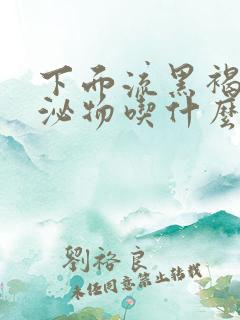 下面流黑褐
泌物喫什麼
劉裕良
未經同意禁止轉載